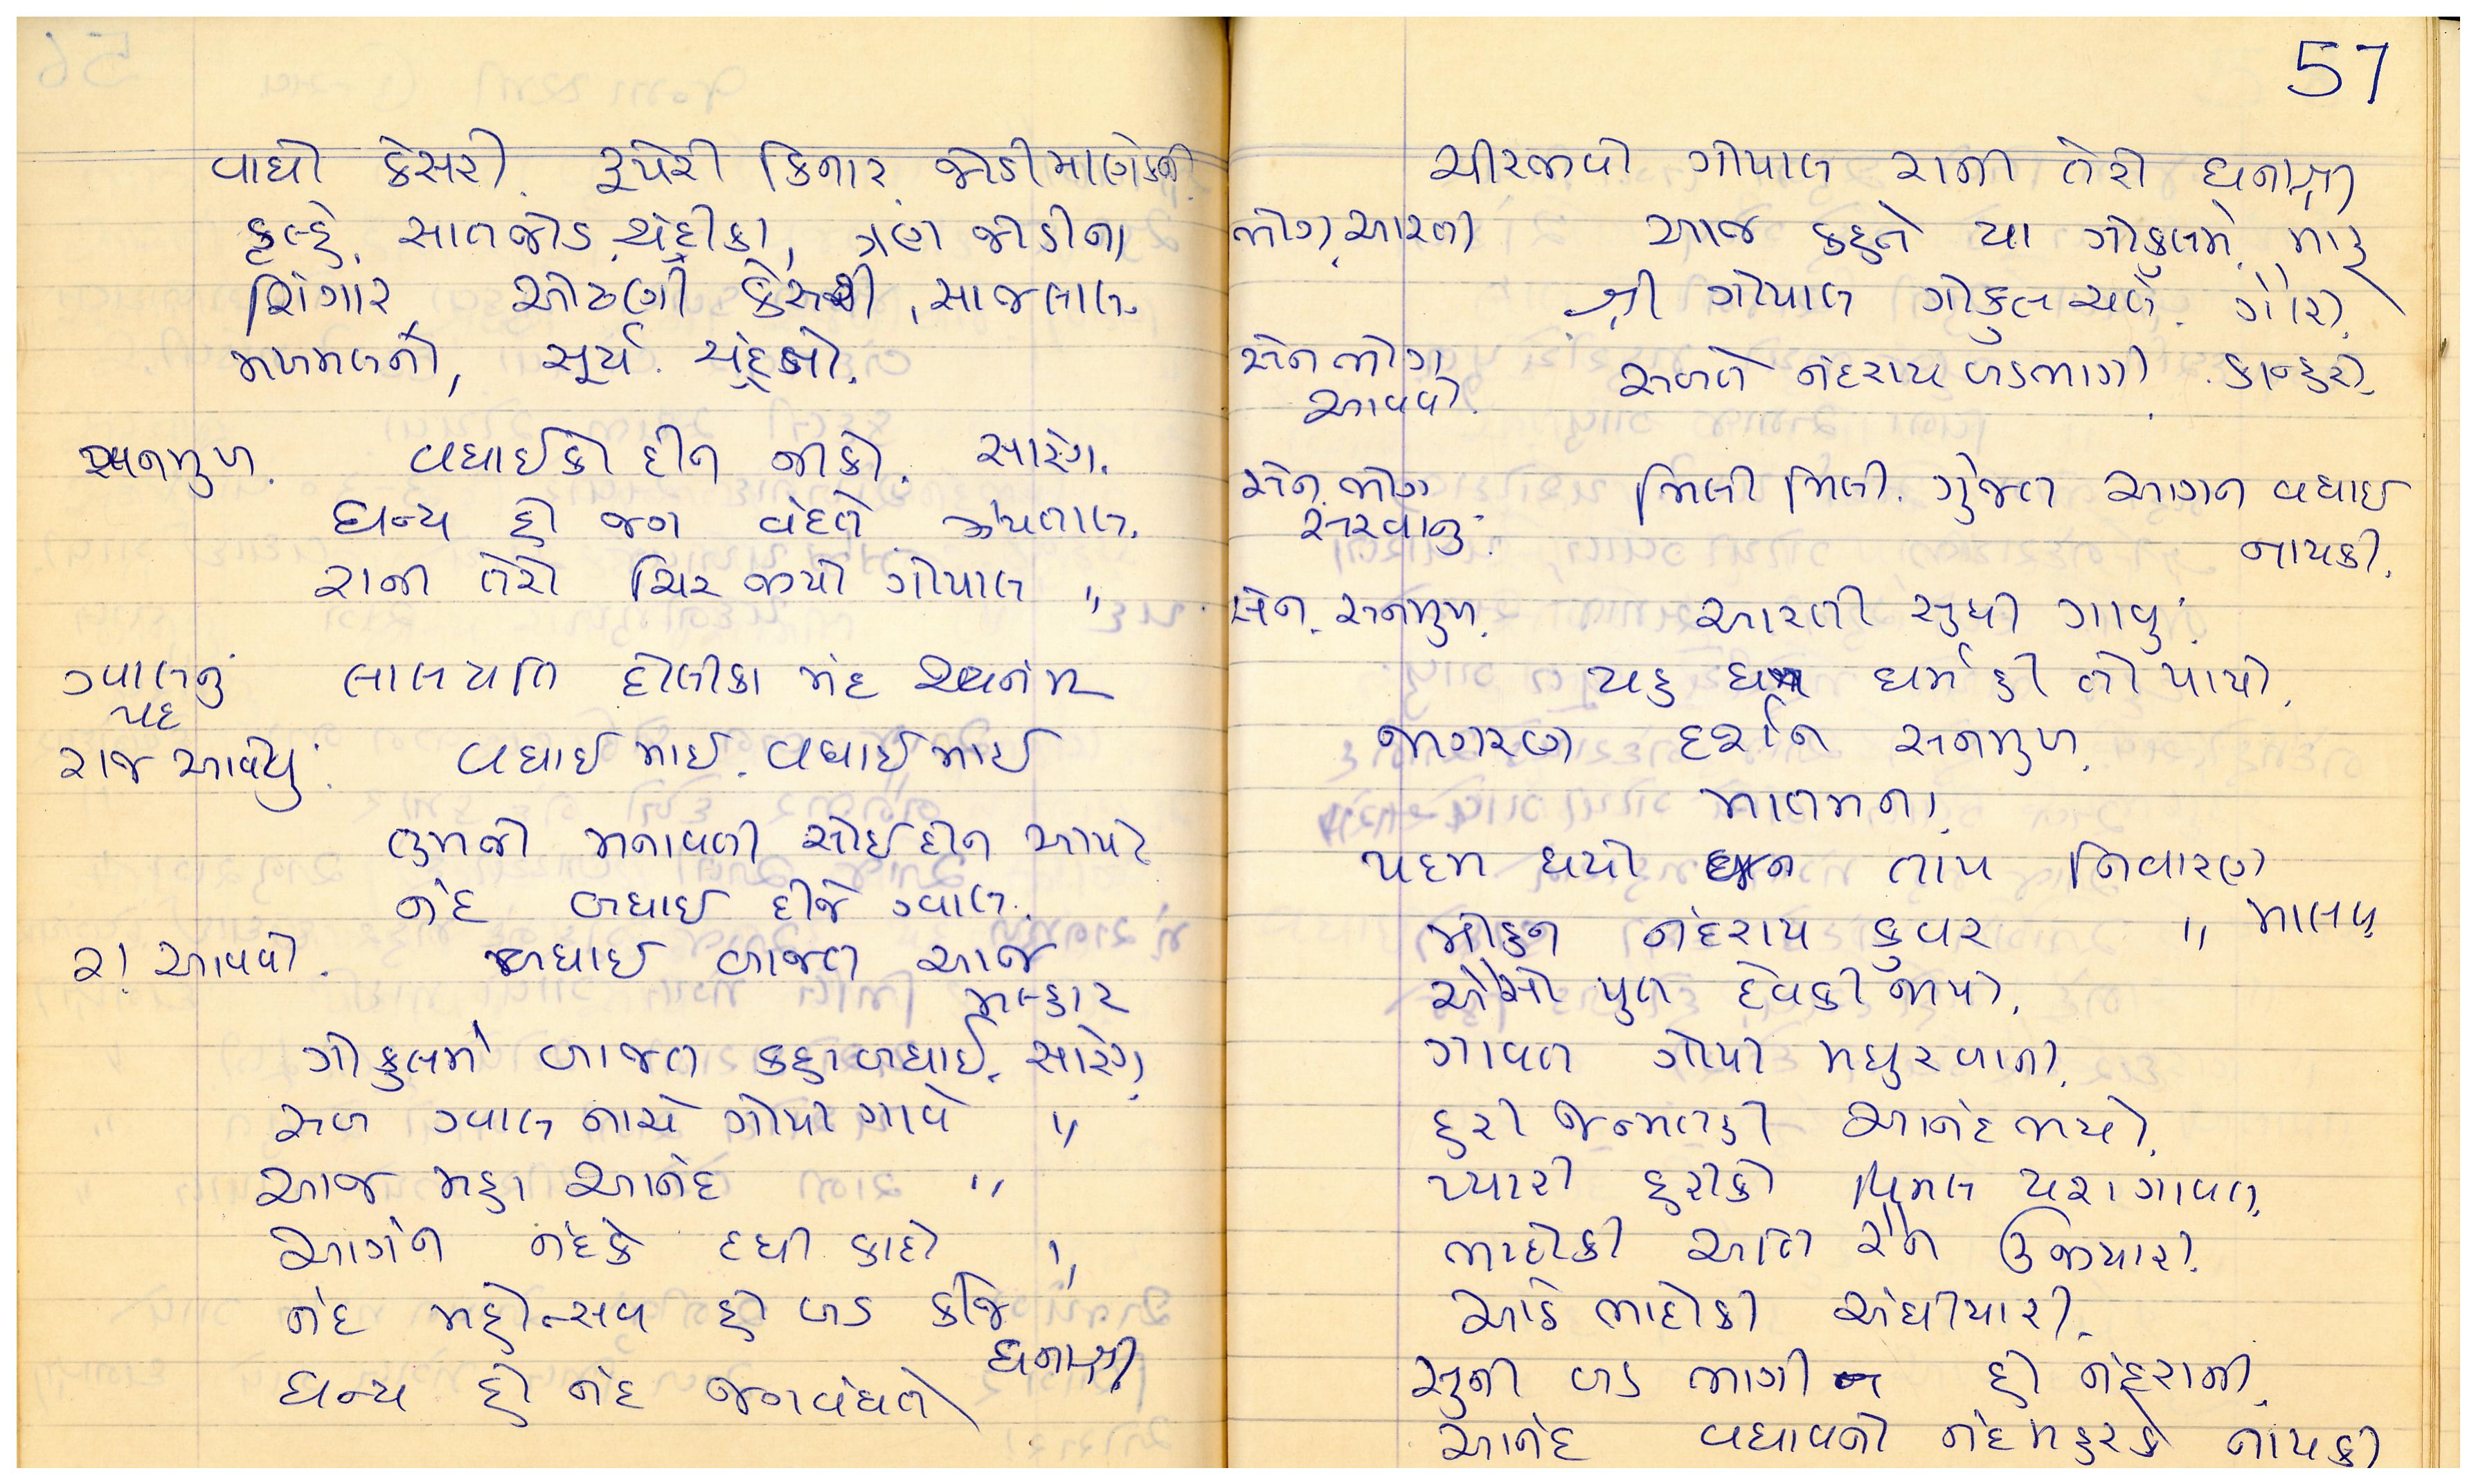 વાઘો કેસરી. રૂપેરી કિનાર જોડી માણેકની
કુલ્હે. સાતજોડ ચંદ્રીકા, ત્રણ જોડીના
શિંગાર, ઓઢણી કેસરી, સાજ લાલ
મખમલનો, સૂર્ય. ચંદ્રનો.
સનમુખ. વધાઈકો દીન નીકો. સારંગ.
ધન્ય હો જગ વંદતે ઝંપતાલ.
રાની તેરો ચિર જીયો ગોપાલ "
ગ્વાલનું લાલ પતિ હોલીકા મંદ
પદ
રાજ આવેયુ વધાઈ માઈ. વધાઈ માઈ
તુમજો મનાવતી સોઈ દીન આયો
નંદ બધાઈ દીજે ગ્વાલ.
રા આવવો. બધાઈ બાજત આજ
મલ્હાર
ગોકુલમેં બાજત કહા બધાઈ. સારંગ
સબ ગ્વાલ નાચે ગોપી ગાવે "
આજ મહા આનંદ "
આગંન નંદકે દધી કાદો "
નંદ મહોત્સવ હો બડ કીજે
ધનાશ્રી
ધન્ય હો નંદ જગવંધતે
57
ચીરજીવો ગોપાલ રાની તેરો ધનાશ્રી
ભોગ આરતી આજ કહુંતે યા ગોકુલમેં મારૂ
શ્રી ગોપાલ ગોકુલ ચલે. ગોરી.
સેન ભોગ સબતે નંદરાય બડભાગી. કાન્હરો.
આવવો.
સેન. ભોગ મિલી મિલી. ગુંજત આગન વધાઈ
સરવાનુ. નાયકી.
સેન. સનમુખ. આરતી સુધી ગાવુ.
યહ ધન ધર્મ હી તે પાયો.
જાગરણ દર્શન સનમુખ.
માલમના.
પદમ ધર્યો જન તાપ નિવારણ
મોહન નંદરાય કુવર " માલવ
ઐસો પુત દેવકી જાયો.
ગાવત ગોપી મધુરબાની.
હરી જન્મતહી આનંદ ભયો.
પ્યારી હરીકો વિમલ યશ ગાવત.
ભાદોકી અતિ રેન ઉજીયારી.
આઠે ભાદોકી અંધીયારી.
સુની બડ ભાગી હો નંદરાની.
આનંદ વધાવનો નંદમહરકે નાયકી